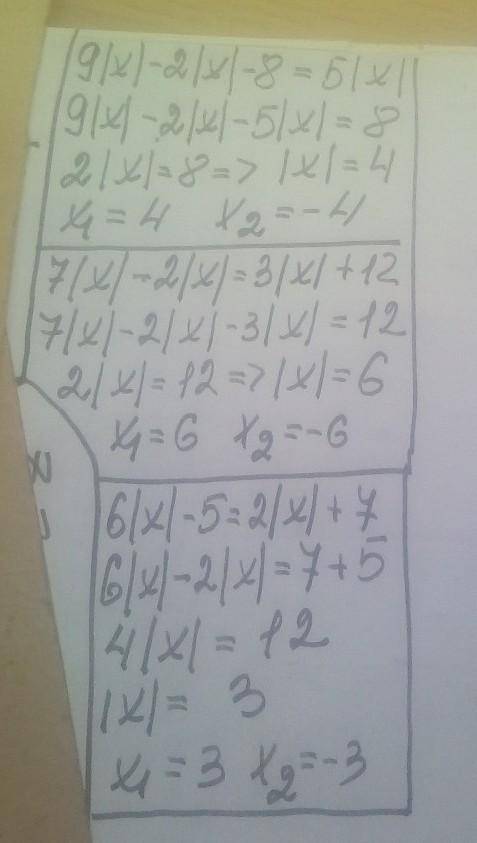 9|x|-2|x|-8=5|x|
9|x|-2|x|-5|x|=8
2|x|=8=>|x|=4
x₁=4 x₂=-4
7|x|-2|x|=3|x|+12
7|x|-2|x|-3|x|=12
2|x|=12=>|x|=6
x₁=6 x₂=-6
6|x|-5=2|x|+7
6|x|-2|x|=7+5
4|x|=12
|x|=3
x₁=3 x₂=-3